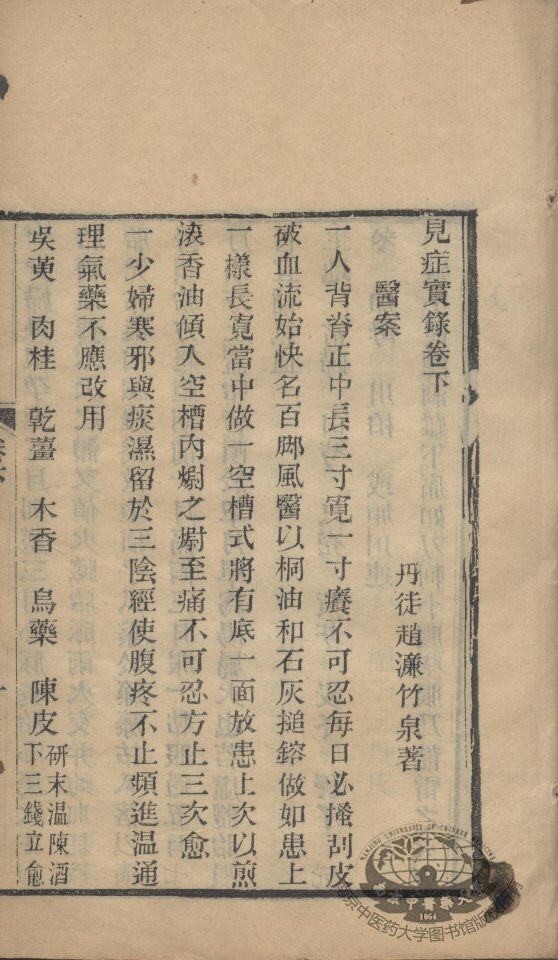 見症實錄卷下
丹徒趙濂竹泉著
醫案
一人背脊正中長三寸寬一寸癢不可忍每日必搔刮皮
破血流始快名百腳風醫以桐油和石灰搥鎔做如患上
一樣長寬當中做一空槽式將有底一面放患上次以煎
滾香油傾入空槽內爛之爛至痛不可忍方止三次愈
一少婦寒邪與痰濕留於三陰經使腹疼不止頻進温通
理氣藥不應改用
吳萸 肉桂 乾薑 木香 烏藥 陳皮 研末温陳酒下三錢立愈
NANJING UNIVERSITY OF CHINESE MEDICINE
南京中醫藥大學
1954
南京中医药大学图书馆版权所有